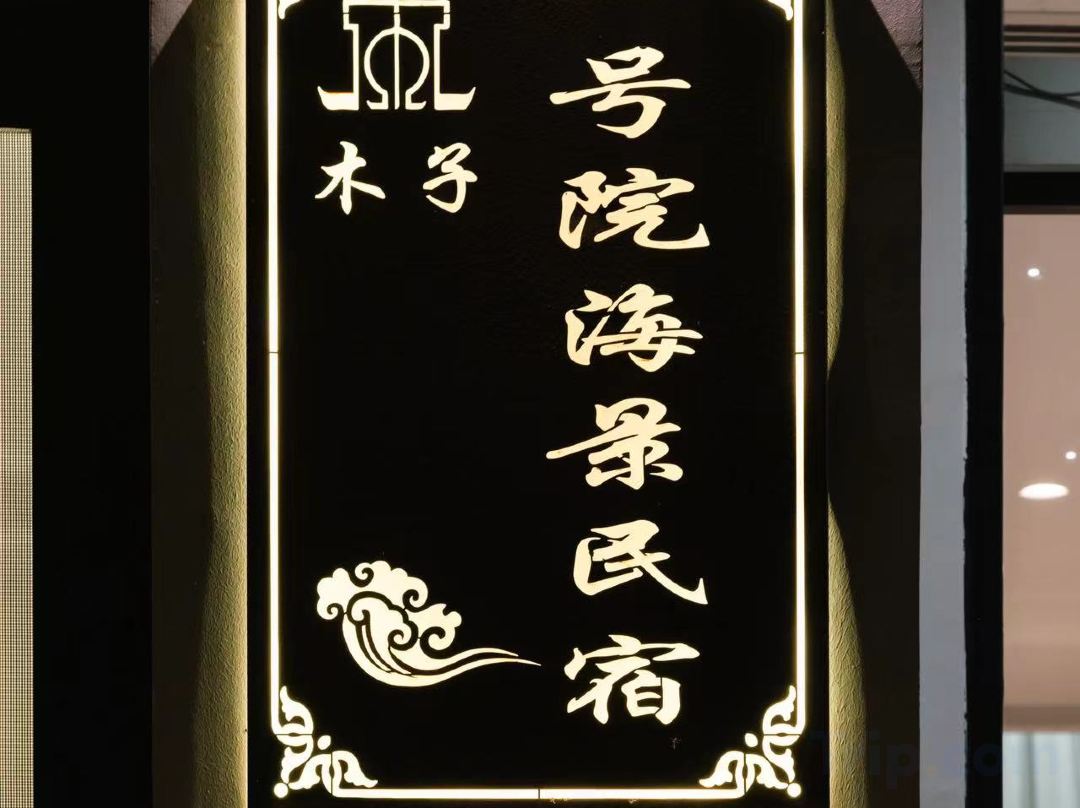 号院海景民宿
木子
Trip.com